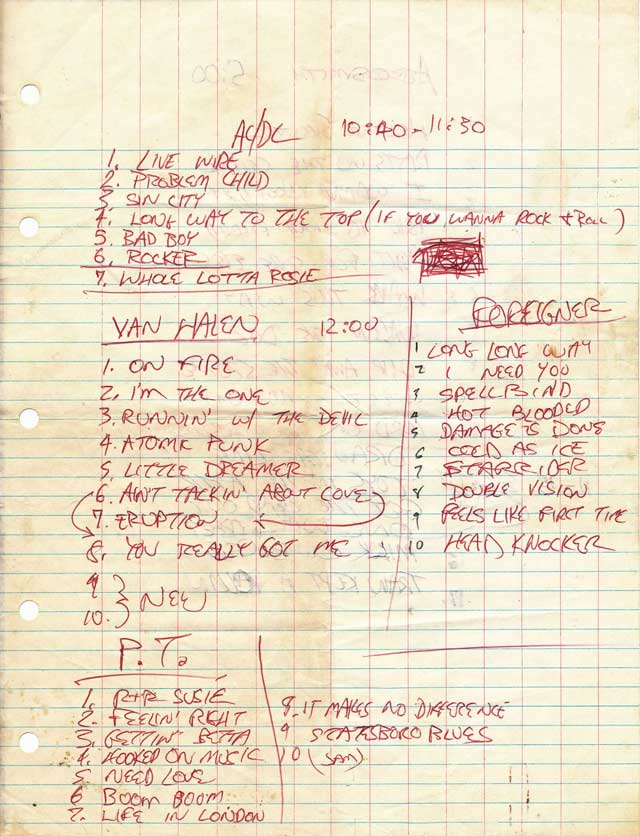 AC/DC 10:40 - 11:30
1. LIVE WIRE
2. PROBLEM CHILD
3 SIN CITY
4. LONG WAY TO THE TOP (IF YOU WANNA ROCK & ROLL)
5. BAD BOY
6. ROCKER
7. WHOLE LOTTA ROSIE
VAN HALEN 12:00
1. ON FIRE
2. I'M THE ONE
3. RUNNIN' W/ THE DEVIL
4. ATOMIC PUNK
5. LITTLE DREAMER
6. AIN'T TALKIN' ABOUT LOVE
7. ERUPTION
8. YOU REALLY GOT ME
9
10. } NEW
FOREIGNER
1 LONG LONG WAY
2 I NEED YOU
3 SPELLBIND
4 HOT BLOODED
5 DAMAGE IS DONE
6 COLD AS ICE
7 STARRIDER
8 DOUBLE VISION
9 FEELS LIKE FIRST TIME
10 HEAD KNOCKER
P.T.
1. R+R SUSIE
2. FEELIN' RIGHT
3. GETTIN' BETTA
4. HOOKED ON MUSIC
5. NEED LOVE
6 BOOM BOOM
7. LIFE IN LONDON
8. IT MAKES NO DIFFERENCE
9 STATESBORO BLUES
10 (SAM)